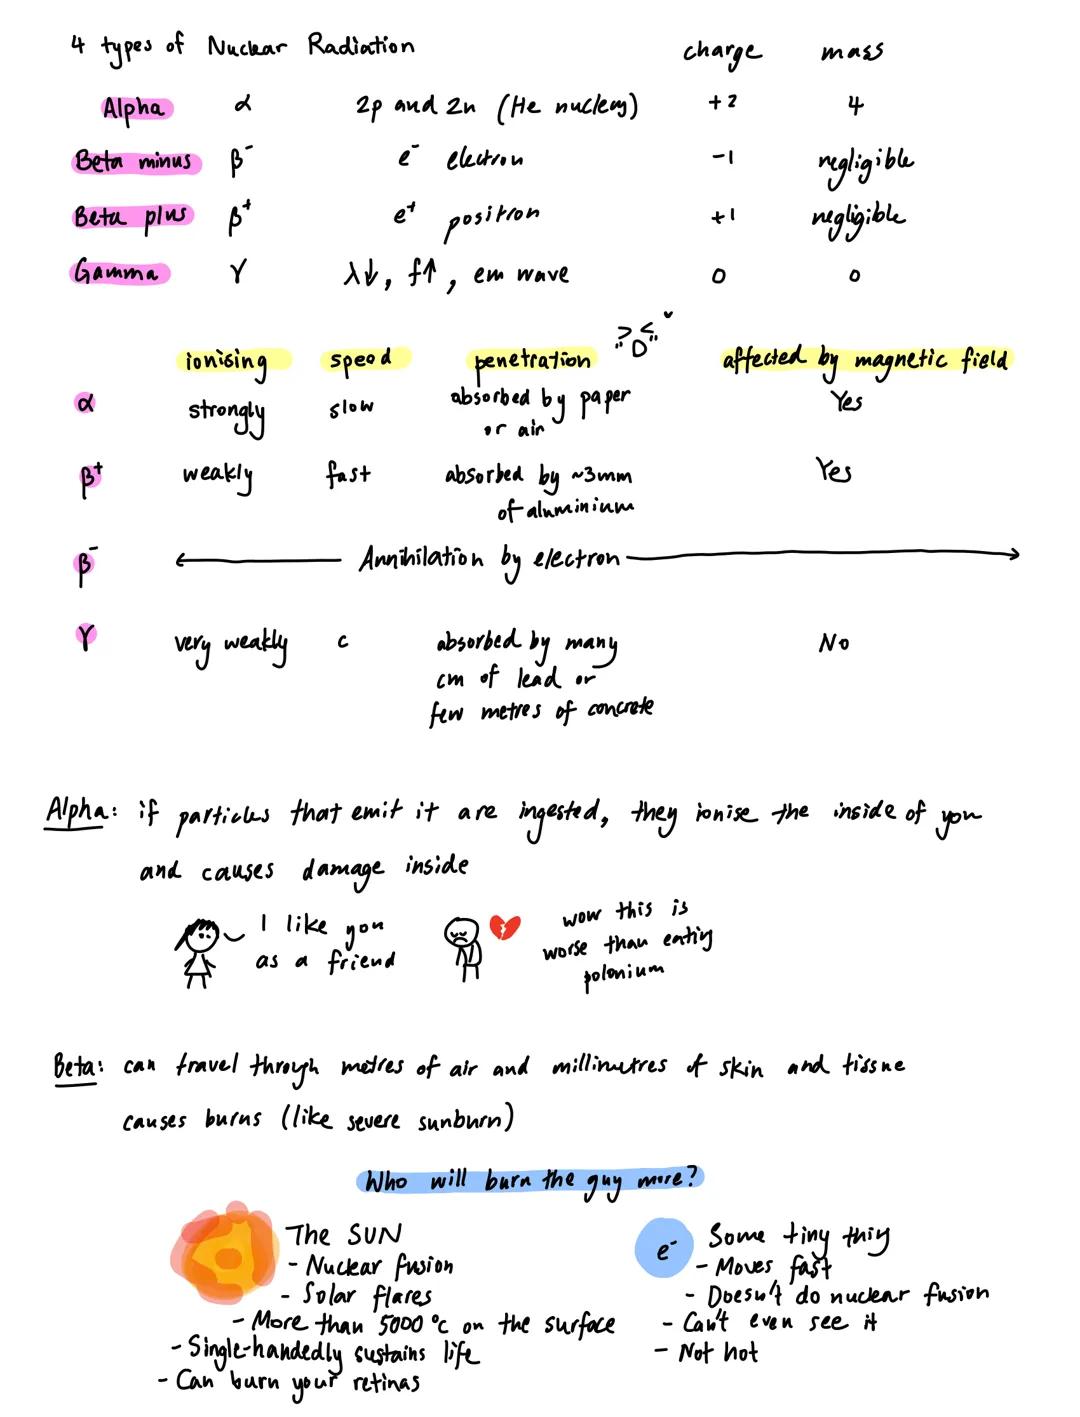 4 types of Nuclear Radiation charge mass
Alpha α 2p and 2n (He nucleus) +2 4
Beta minus β⁻ e⁻ electron -1 negligible
Beta plus β⁺ e⁺ positron +1 negligible
Gamma γ λ↓, f↑, em wave 0 0
ionising speed penetration affected by magnetic field
α strongly slow absorbed by paper Yes
or air
β⁺ weakly fast absorbed by ~3mm Yes
of aluminium
β⁻ Annihilation by electron
γ very weakly c absorbed by many No
cm of lead or
few metres of concrete
Alpha: if particles that emit it are ingested, they ionise the inside of you
and causes damage inside
I like you
as a friend
wow this is
worse than eating
polonium
Beta: can travel through metres of air and millimetres of skin and tissue
causes burns (like severe sunburn)
Who will burn the guy more?
The SUN
- Nuclear fusion
- Solar flares
- More than 5000°C on the surface
- Single-handedly sustains life
- Can burn your retinas
e⁻ Some tiny thing
- Moves fast
- Doesn't do nuclear fusion
- Can't even see it
- Not hot